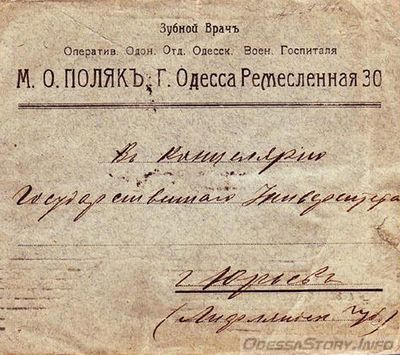 Зубной Врачъ
Оператив. Одон. Отд. Одесск. Воен. Госпиталя
М. О. ПОЛЯКЪ, Г. Одесса Ремесленная 30
Въ Канцелярію
Государственнаго Университета
г. Юрьевъ
(Лифляндск. губ.)
OdessaStory.Info